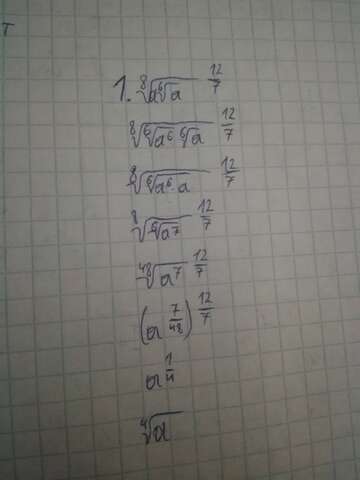 T
1. ⁸√(a⁶√a) ^(12/7)
⁸√(⁶√(a⁶) ⁶√a) ^(12/7)
⁸√(⁶√(a⁶·a)) ^(12/7)
⁸√(⁶√(a⁷)) ^(12/7)
⁴⁸√(a⁷) ^(12/7)
(a^(7/48))^(12/7)
a^(1/4)
⁴√a